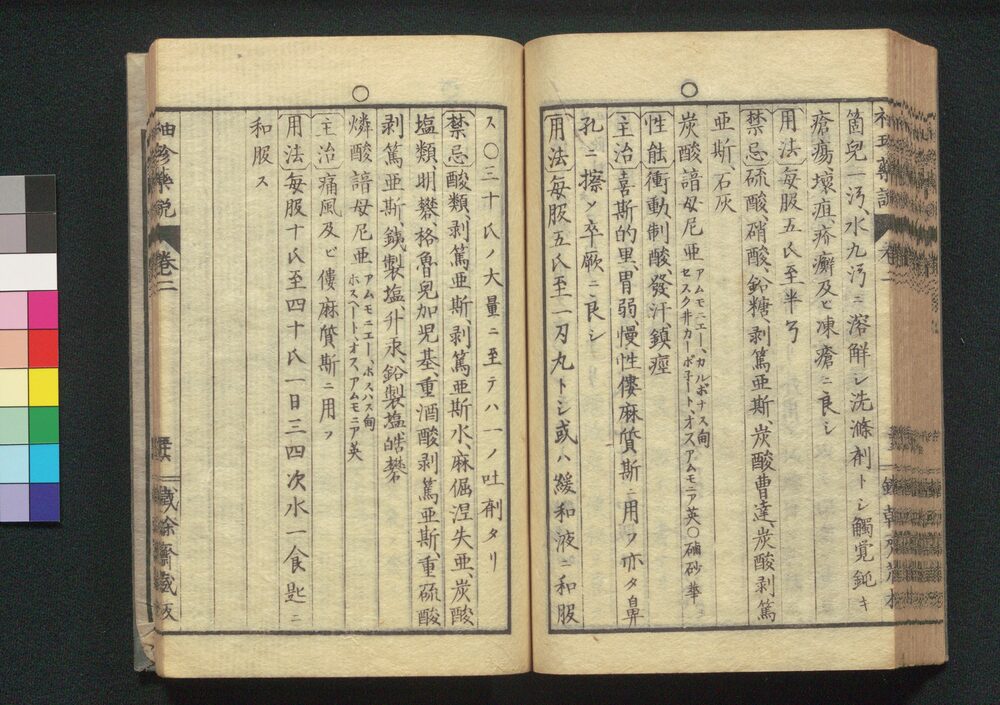 箇兒一汚、水九汚ニ溶解シ洗滌剤トシ觸覚鈍キ
瘡瘍壊疽、疥癬及ヒ凍瘡ニ良シ
用法 毎服五氏至半
禁忌 硫酸、硝酸、鉛糖、剥篤亜斯、炭酸曹達、炭酸剥篤
亜斯、石灰
炭酸諳母尼亜 アムモニエー、カルボナス甸 セスクヰカーボ子ート、オスアムモニア英〇磠砂華
性能 衝動、制酸、發汗、鎮痙
主治 喜斯的里、胃弱、慢性僂麻質斯ニ用フ亦タ鼻
孔ニ擦メ卒厥ニ良シ
用法 毎服五氏至一刃丸トシ或ハ緩和液ニ和服
ス〇三十氏ノ大量ニ至テハ一ノ吐剤タリ
禁忌 酸類、剥篤亜斯、剥篤亜斯水、麻倔涅失亜、炭酸
塩類、明礬、格魯兒加児基、重酒酸剥篤亜斯、重硫酸
剥篤亜斯、銕製塩、升汞、鉛製塩、皓礬
燐酸諳母尼亜 アムモニエー、ホスハス甸 ホスヘート、オス、アムモニア英
主治 痛風及ヒ僂麻質斯ニ用フ
用法 毎服十氏至四十氏一日三四次水一食匙ニ
和服ス
袖珍藥説 卷二